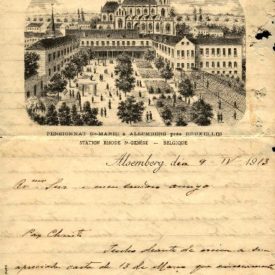 PENSIONNAT Ste MARIE à ALSEMBERG près BRUXELLES
STATION RHODE St GENÈSE — BELGIQUE
Alsemberg, dia 9 IV 1913
Snr. e meu amigo
Pax Christi
Tenho deante de mim a sua
apreciada carta de 13 de Março que